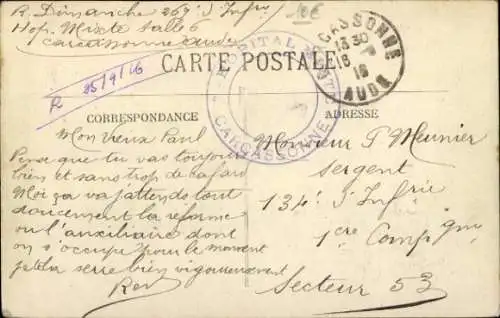 R. Dimanche 269e d'Infrie
Hop. Mixte Salle 6
Carcassonne Aude
10€
CARCASSONNE
13 30
16
16
AUDE
HOPITAL MIXTE
CARCASSONNE
CARTE POSTALE
R 25/9/16
CORRESPONDANCE
ADRESSE
Mon Vieux Paul
Pense que tu vas toujours
bien et sans trop de cafard
Moi ça va j'attends tout
doucement la réforme
ou l'auxiliaire dont
on s'occupe pour le moment
je te la serre bien vigoureusement
René
Monsieur P Meunier
Sergent
134e d'Infrie
1ère Compi gnie
Secteur 53